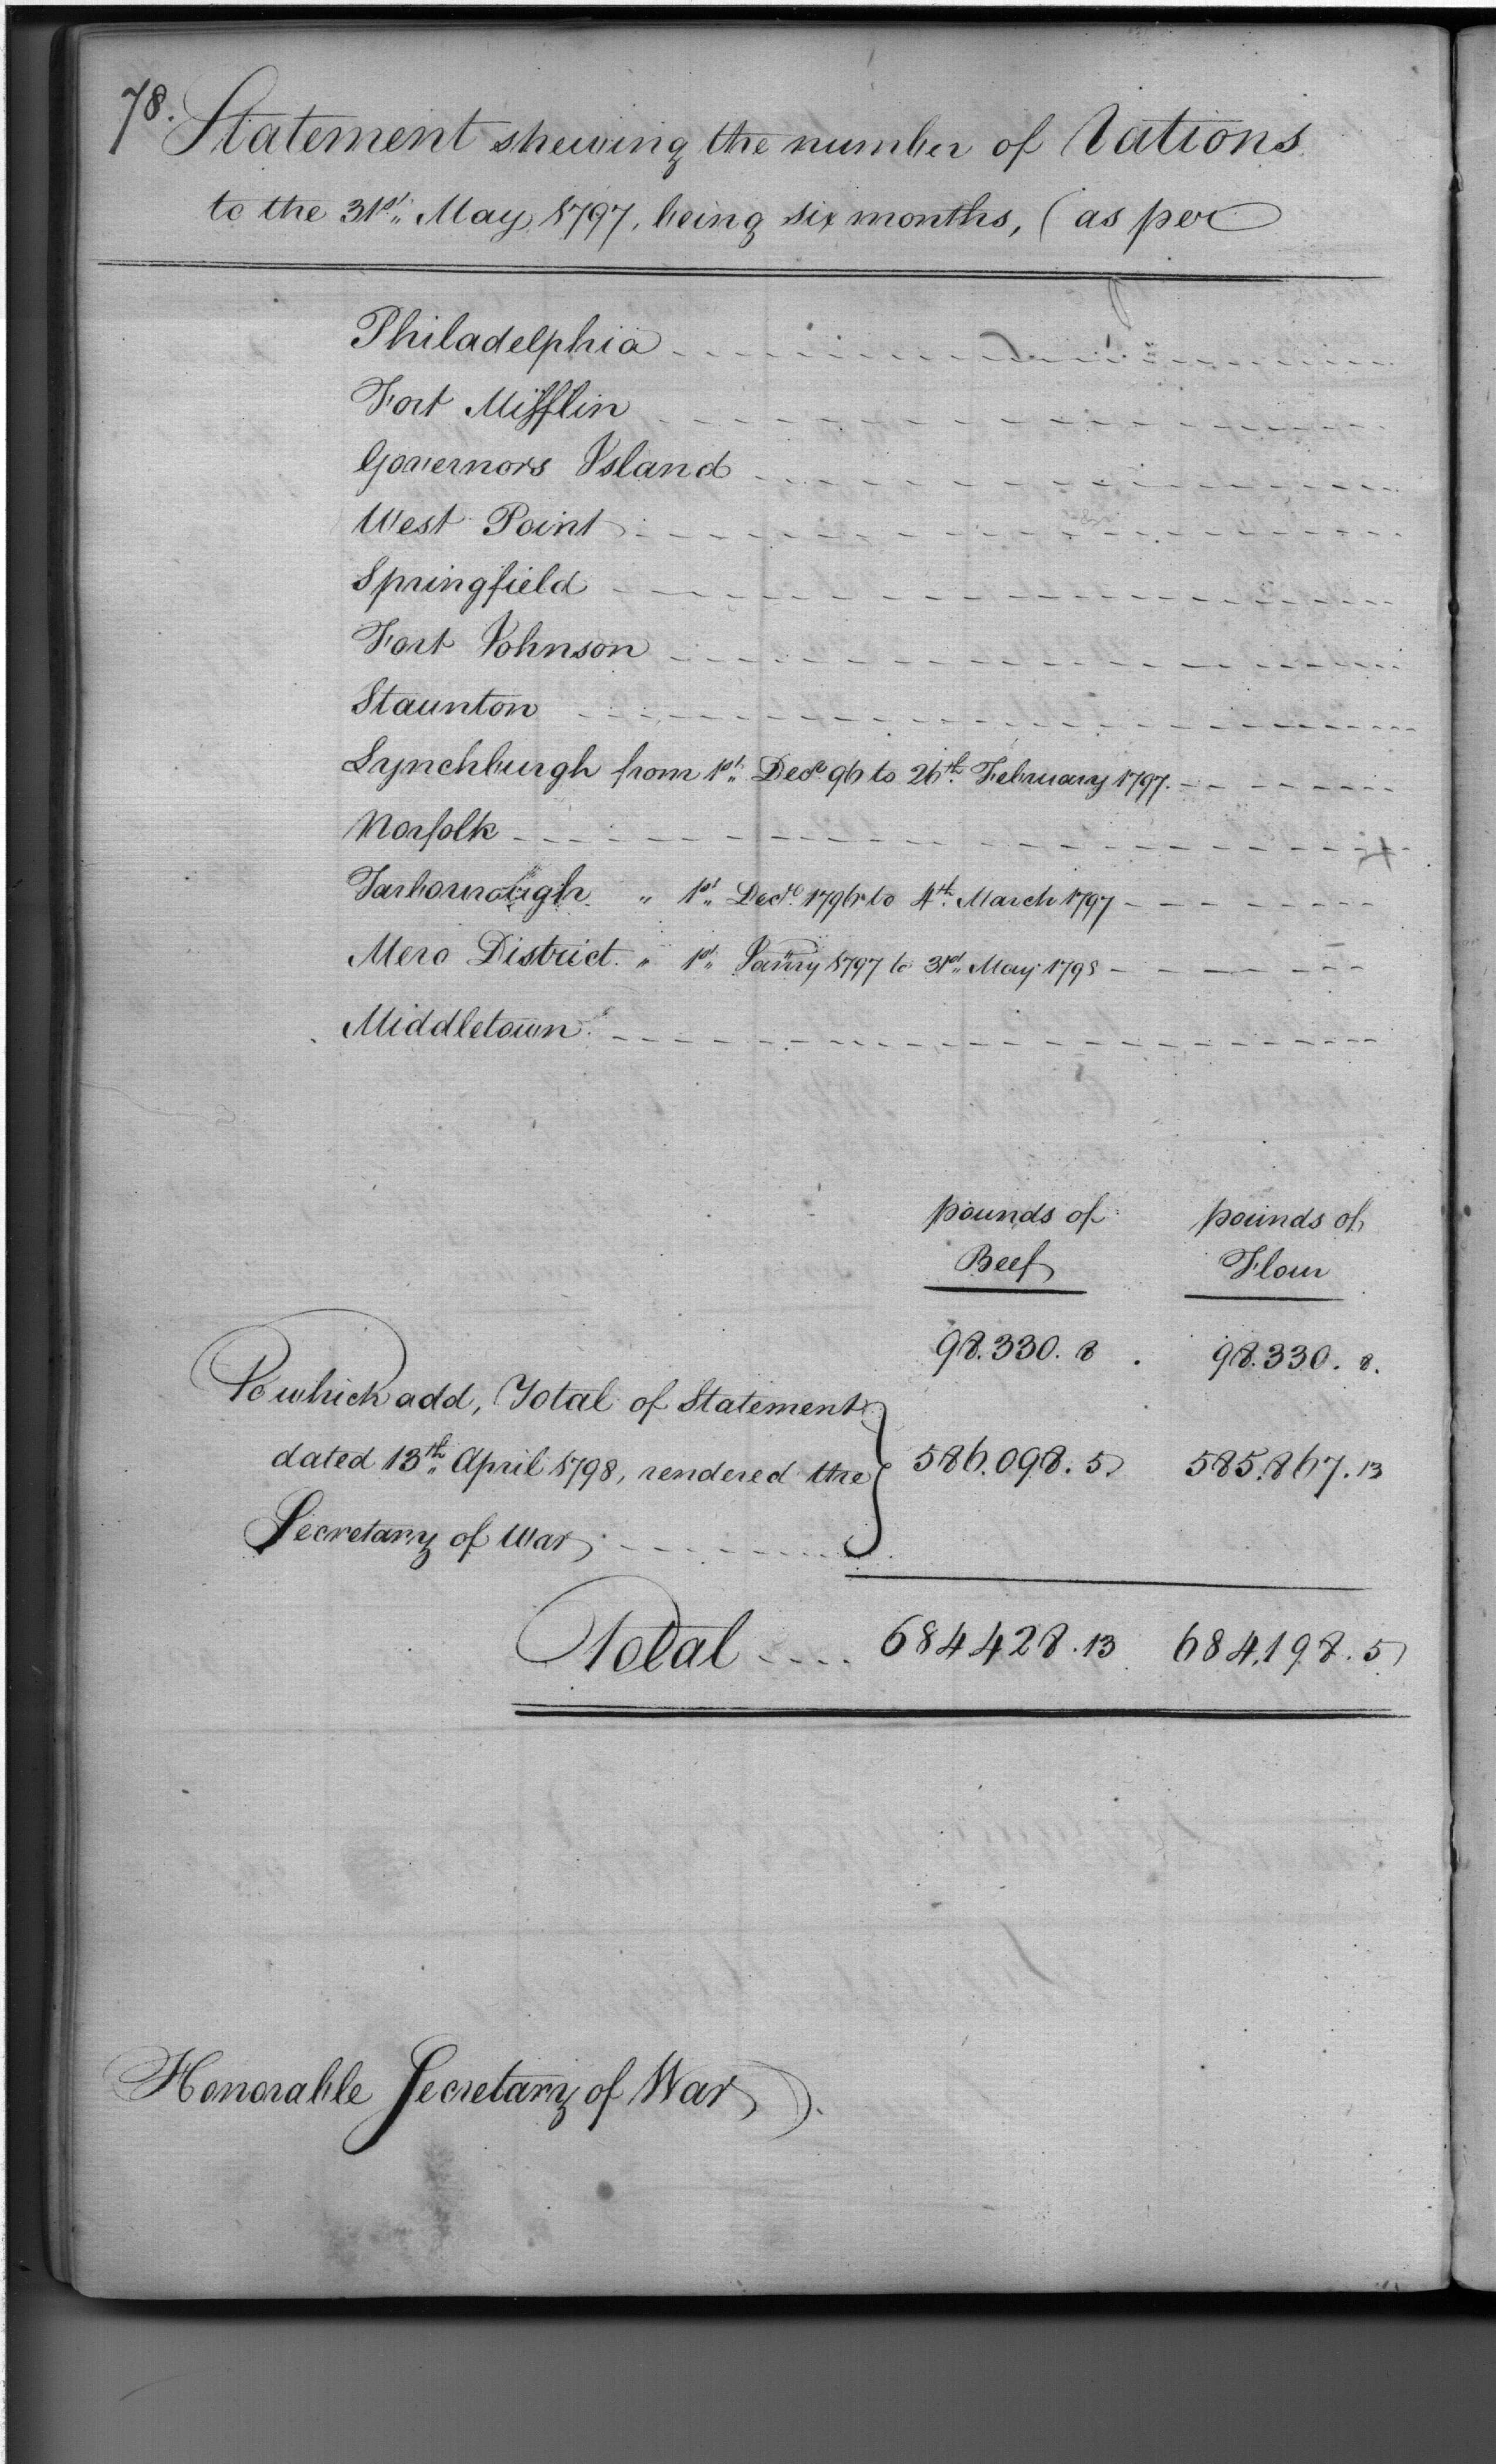 78.
Statement shewing the number of Rations
to the 31st. May, 1797, being six months, (as per
Philadelphia
Fort Mifflin
Governors Island
West Point
Springfield
Fort Johnson
Staunton
Lynchburgh from 1st. Decr. 96 to 26th. February 1797.
Norfolk
Tarborough " 1st. Decr. 1796 to 4th. March 1797
Mero District " 1st. Janry 1797 to 31st. May 1798
Middletown
pounds of pounds of
Beef Flour
98.330. 8. 98.330. 8.
To which add, Total of Statement
dated 13th. April 1798, rendered the } 586.098. 5 585.867. 13
Secretary of War
Total .... 684428. 13 684,198. 5
Honorable Secretary of War.